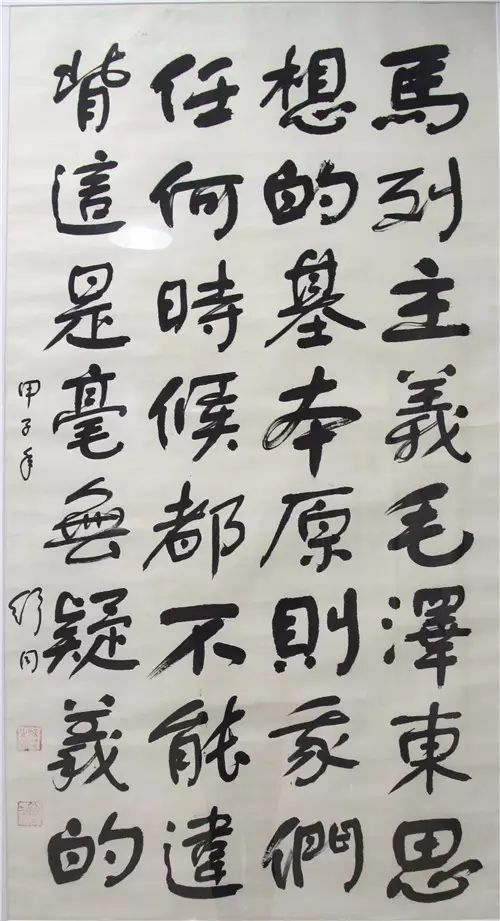 馬列主義毛澤東思
想的基本原則我們
任何時候都不能違
背這是毫無疑義的
甲子年
舒同